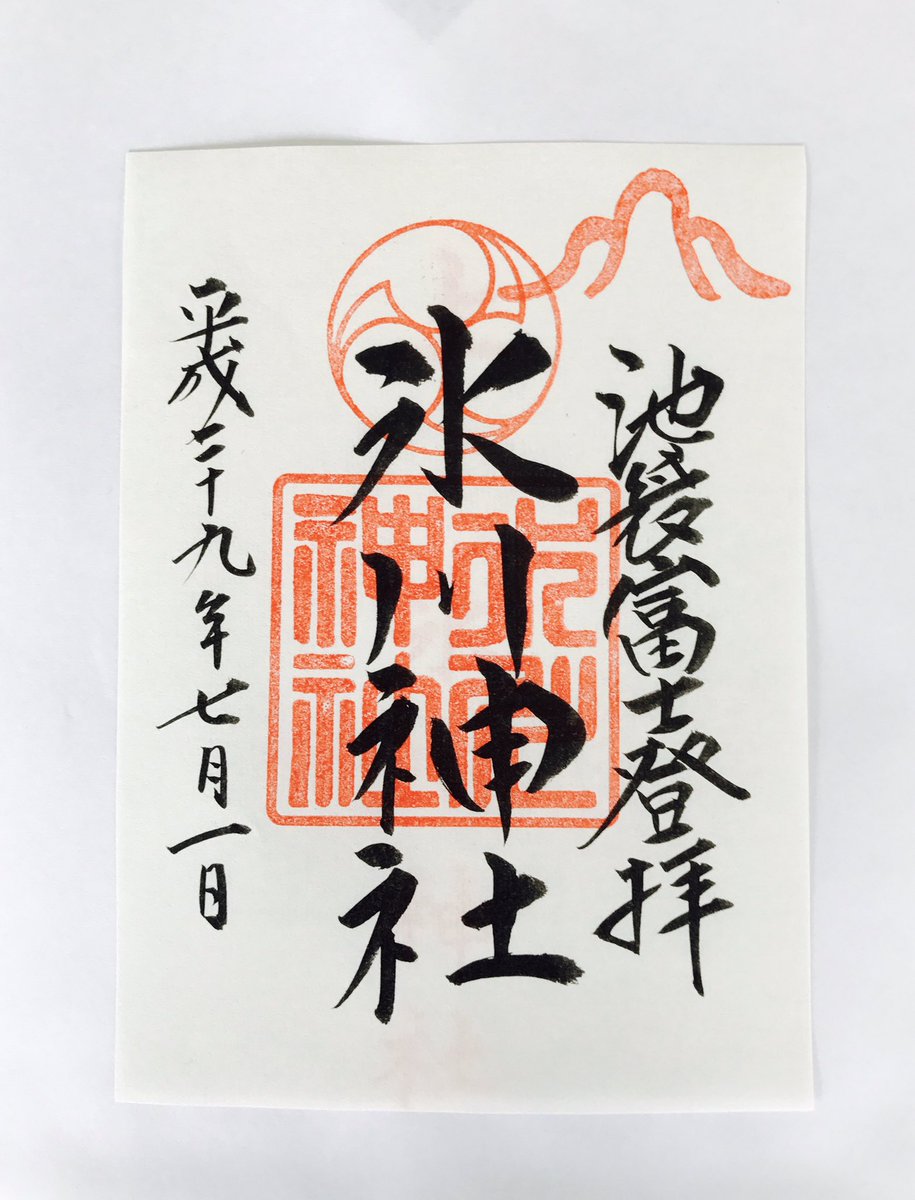 池袋富士登拝
氷川神社
平成二十九年七月一日
氷川神社